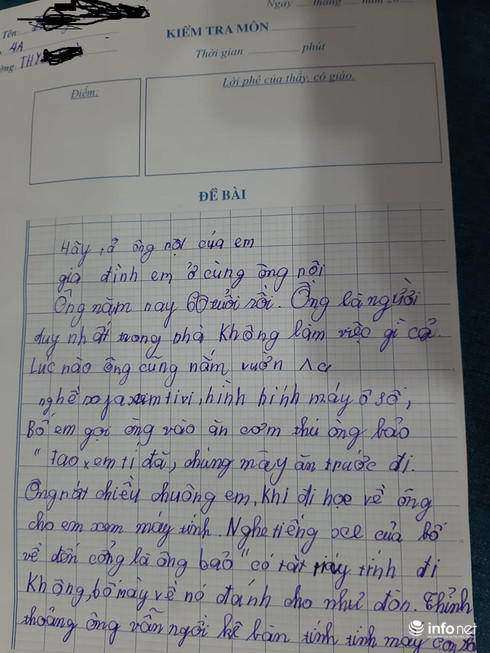 Ngày ... tháng ... năm 20
Tên
4A
KIỂM TRA MÔN
ờng. THY
Thời gian phút
Điểm:
Lời phê của thầy, cô giáo.
ĐỀ BÀI
Hãy tả ông nội của em
gia đình em ở cùng ông nội
Ông năm nay 60 tuổi rồi. Ông là người
duy nhất trong nhà Không làm việc gì cả.
Lúc nào ông cũng nằm vươn ra
xem tivi, hình hình máy ô số,
Bố em gọi ông vào ăn cơm thì ông bảo
" Tao xem tí đã, chúng mày ăn trước đi.
Ông rất chiều chuông em, Khi đi học về ông
cho em xem máy tính. Nghe tiếng xe của bố
về đến cổng là ông bảo " có tắt máy tính đi
Không, bố mày về nó đánh cho như đòn. Thỉnh
thoảng ông vẫn ngồi kê bàn tính tính máy con
infonet